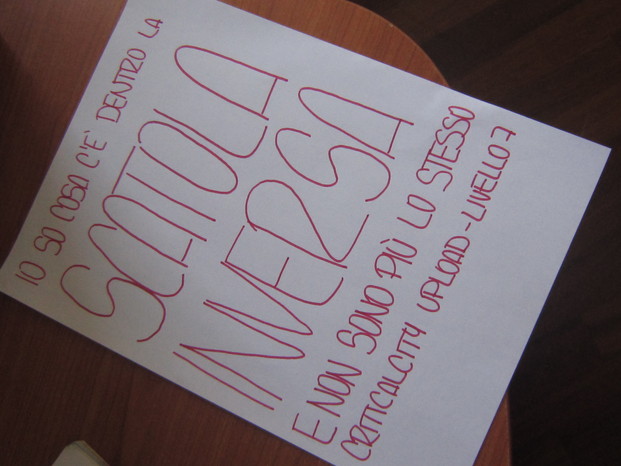 IO SO COSA C'E' DENTRO LA
SCATOLA
INVERSA
E NON SONO PIÙ LO STESSO
CRITICALCITY UPLOAD-LIVELLO 7